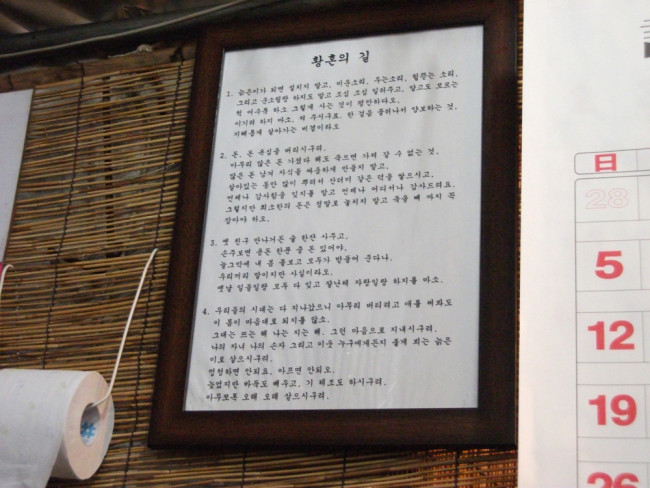 황혼의 길
1. 늙은이가 되면 설치지 말고, 미운소리, 우는소리, 헐뜯는 소리,
그리고 군소릴랑 하지도 말고 조심 조심 일러주고, 알고도 모르는
척 어수룩 하소 그렇게 사는 것이 평안하다오.
이기려 하지 마소, 져 주시구려. 한 걸음 물러나서 양보하는 것,
지혜롭게 살아가는 비결이라오
2. 돈, 돈 욕심을 버리시구려.
아무리 많은 돈 가졌다 해도 죽으면 가져 갈 수 없는 것,
많은 돈 남겨 자식들 싸움하게 만들지 말고,
살아있는 동안 많이 뿌려서 산더미 같은 덕을 쌓으시고,
언제나 감사함을 잊지를 말고 언제나 어디서나 감사드려요.
그렇지만 최소한의 돈은 정말로 놓치지 말고 죽을 때 까지 꼭
잡아야 하오.
3. 옛 친구 만나거든 술 한잔 사주고,
손주보면 용돈 한푼 줄 돈 있어야,
늘그막에 내 몸 돌보고 모두가 받들어 준다나.
우리끼리 말이지만 사실이라오.
옛날 일들일랑 모두 다 잊고 잘난체 자랑일랑 하지를 마소.
4. 우리들의 시대는 다 지나갔으니 아무리 버티려고 애를 써봐도
이 몸이 마음대로 되지를 않소.
그대는 뜨는 해 나는 지는 해. 그런 마음으로 지내시구려.
나의 자녀 나의 손자 그리고 이웃 누구에게든지 좋게 뵈는 늙은
이로 살으시구려.
멍청하면 안되요. 아프면 안되오.
늙었지만 바둑도 배우고, 기 체조도 하시구려.
아무쪼록 오래 오래 살으시구려.
日
28
5
12
19
26